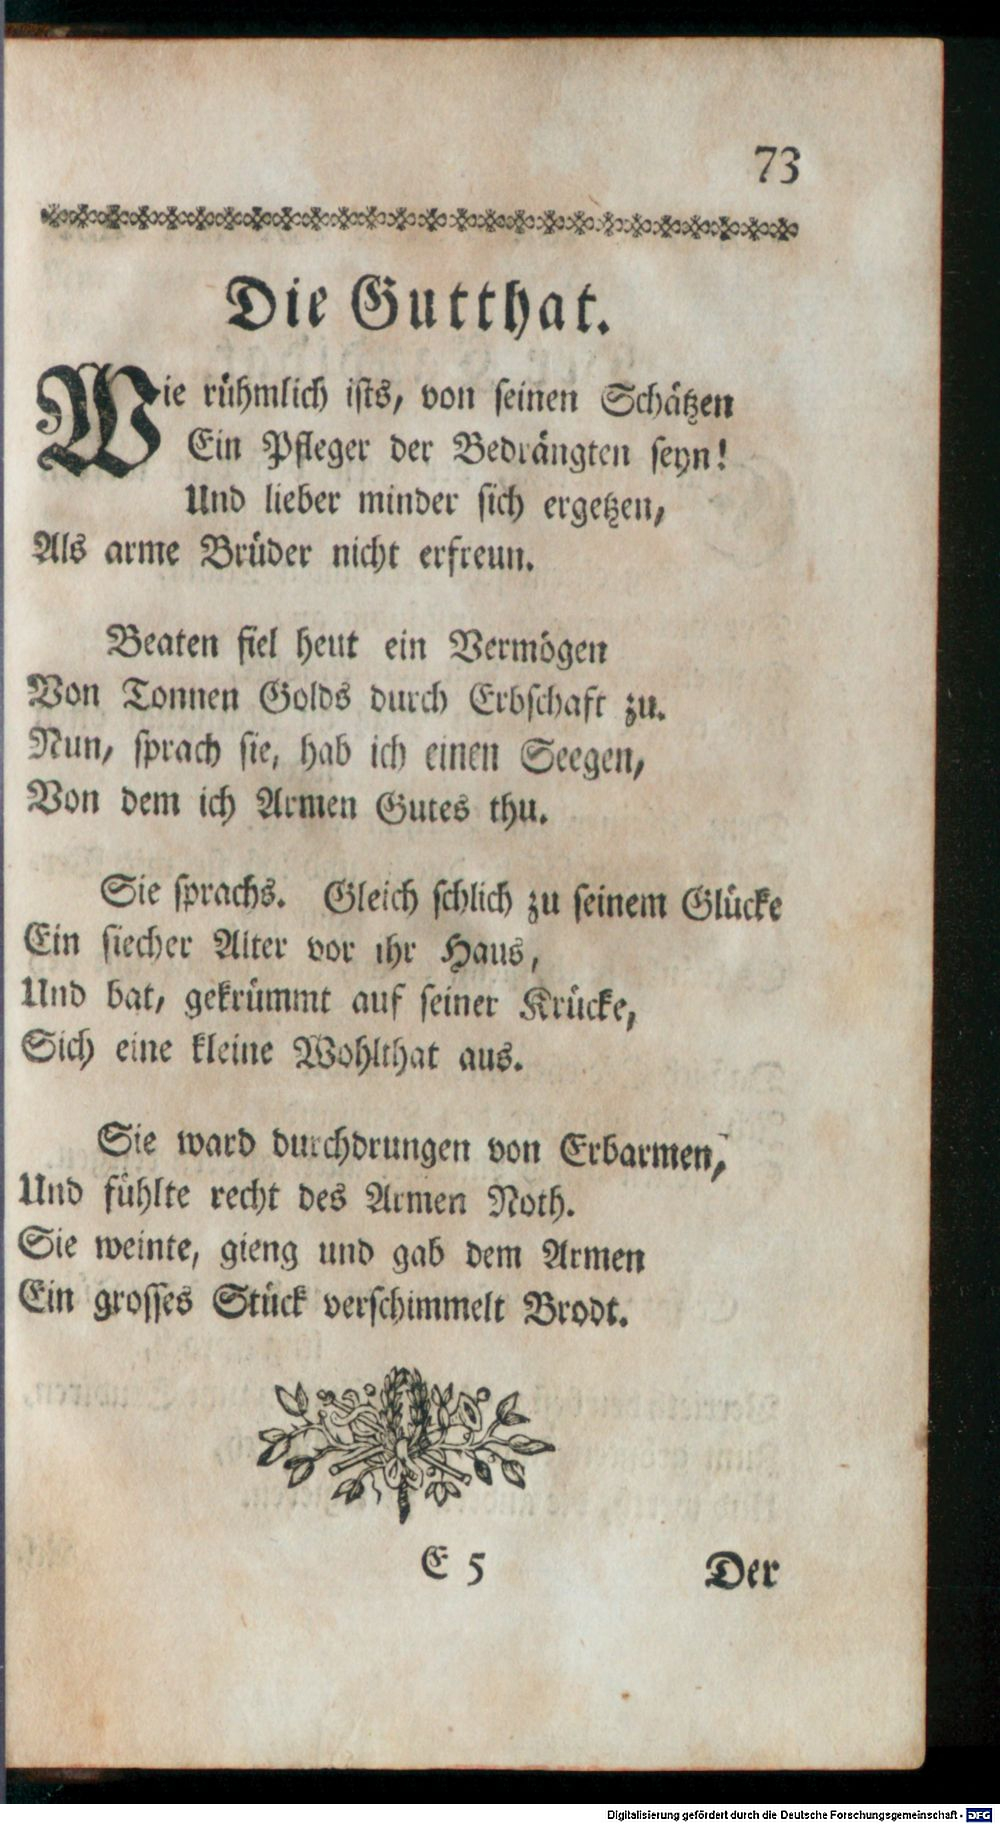 73
Die Gutthat.
Wie rühmlich ists, von seinen Schätzen
Ein Pfleger der Bedrängten seyn!
Und lieber minder sich ergetzen,
Als arme Brüder nicht erfreun.
Beaten fiel heut ein Vermögen
Von Tonnen Golds durch Erbschaft zu.
Nun, sprach sie, hab ich einen Seegen,
Von dem ich Armen Gutes thu.
Sie sprachs. Gleich schlich zu seinem Glücke
Ein siecher Alter vor ihr Haus,
Und bat, gekrümmt auf seiner Krücke,
Sich eine kleine Wohlthat aus.
Sie ward durchdrungen von Erbarmen,
Und fühlte recht des Armen Noth.
Sie weinte, gieng und gab dem Armen
Ein grosses Stück verschimmelt Brodt.
E 5 Der
Digitalisierung gefördert durch die Deutsche Forschungsgemeinschaft - DFG